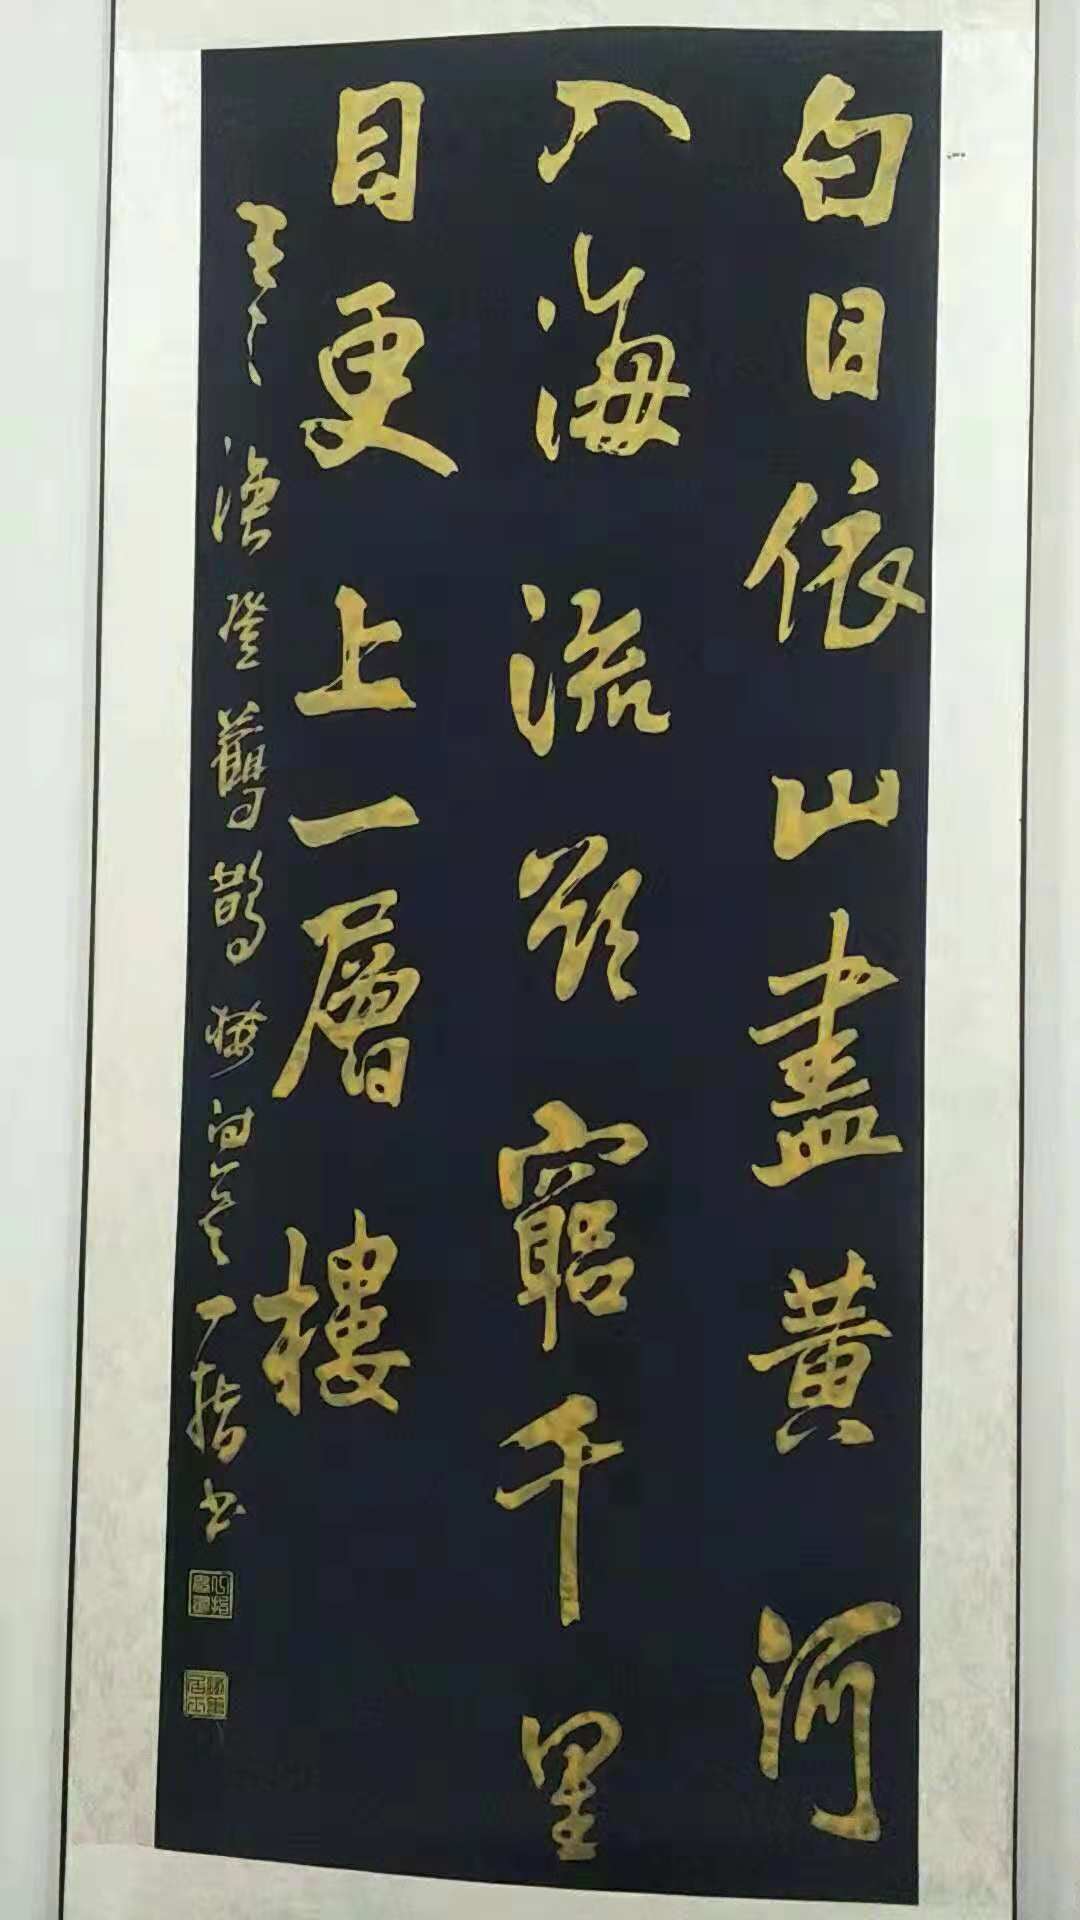 白日依山盡黄河
入海流欲窮千里
目更上一層樓
王之渙登鸛鵲樓詩 指书